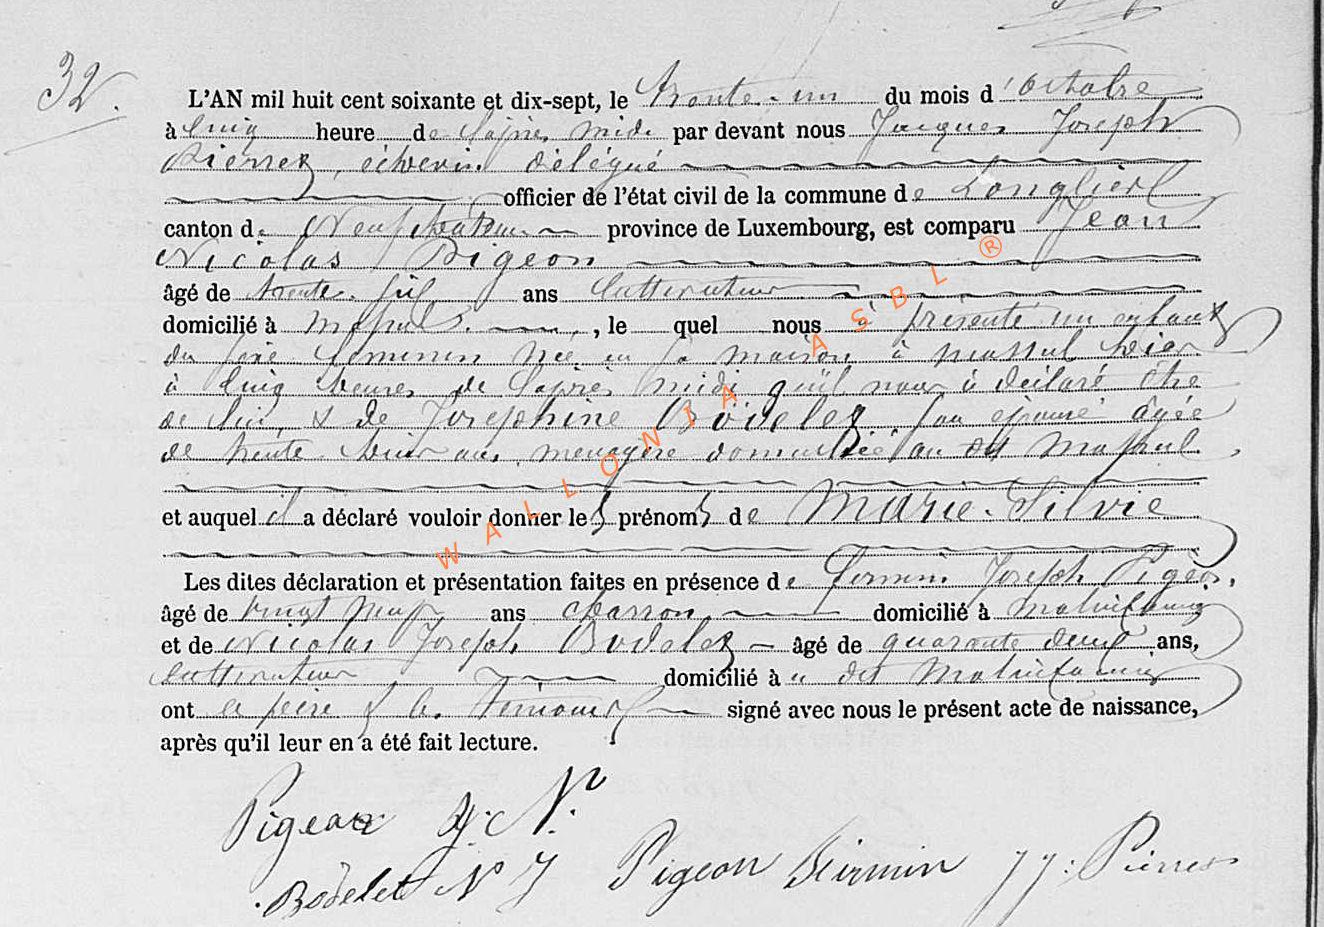 32.
L'AN mil huit cent soixante et dix-sept, le trente-un du mois d'octobre
à cinq heure de l'après midi par devant nous Jacques Joseph
Pierret, échevin délégué
officier de l'état civil de la commune de Longlier
canton de Neufchateau province de Luxembourg, est comparu Jean
Nicolas Pigeon
âgé de trente-six ans cultivateur
domicilié à Massul, lequel nous a présenté un enfant
du sexe féminin née en sa maison à Massul hier
à cinq heures de l'après midi qu'il nous a déclaré être
de lui, & de Josephine Bodelet, son épouse âgée
de trente huit ans, menagère domiciliée au dit Massul
et auquel il a déclaré vouloir donner les prénoms de Marie-Silvie
Les dites déclaration et présentation faites en présence de Firmin Joseph Pigeon,
âgé de vingt neuf ans charron domicilié à Molinfaing
et de Nicolas Joseph Bodelet âgé de quarante deux ans,
cultivateur domicilié à dit Molinfaing
ont le père & les témoins signé avec nous le présent acte de naissance,
après qu'il leur en a été fait lecture.
Pigeon J. N.
Bodelet N J Pigeon Firmin J J: Pierret
WALLONIA ASBL ®